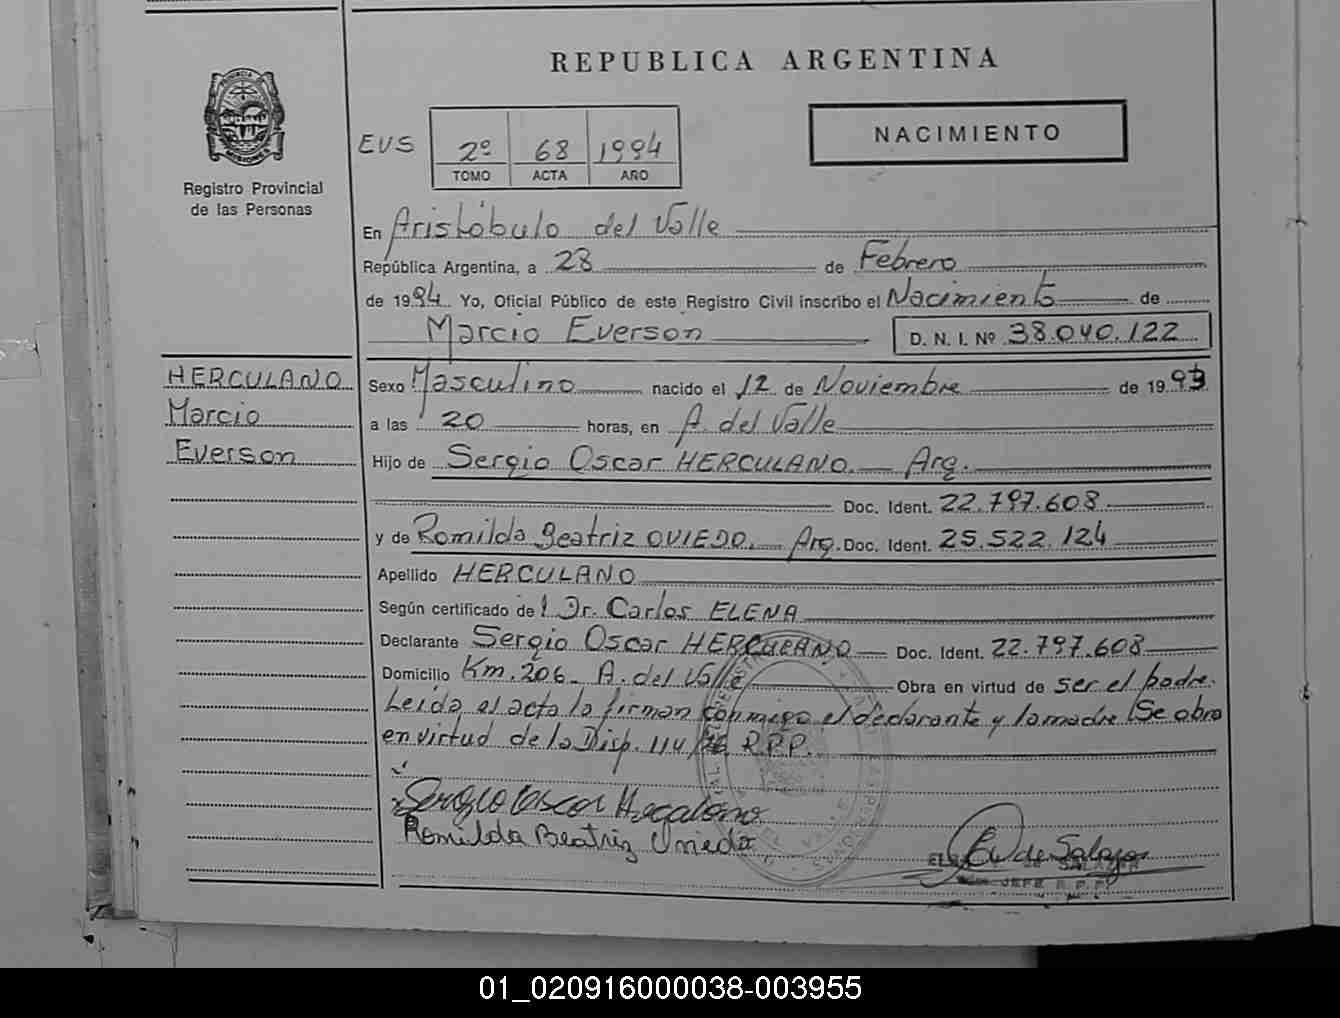 REPUBLICA ARGENTINA
PROVINCIA DE
MISIONES
Registro Provincial
de las Personas
EVS 2º 68 1994
TOMO ACTA AÑO
NACIMIENTO
En Aristóbulo del Valle
República Argentina, a 28 de Febrero
de 1994 Yo, Oficial Público de este Registro Civil inscribo el Nacimiento de
Marcio Everson D. N. I. Nº 38.040.122
HERCULANO
Marcio
Everson
Sexo Masculino nacido el 12 de Noviembre de 1993
a las 20 horas, en A. del Valle
Hijo de Sergio Oscar HERCULANO. Arg.
Doc. Ident. 22.797.608
y de Romilda Beatriz OVIEDO. Arg. Doc. Ident. 25.522.124
Apellido HERCULANO
Según certificado de Dr. Carlos ELENA
Declarante Sergio Oscar HERCULANO Doc. Ident. 22.797.608
Domicilio Km. 206 A. del Valle Obra en virtud de ser el padre.
Leida el acta la firman conmigo el declarante y la madre Se obra
en virtud de la Disp. 114/ R.P.P.
Sergio Oscar
Romilda Beatriz
de Salazar
SALAZAR
JEFE R.P.P.
01_020916000038-003955